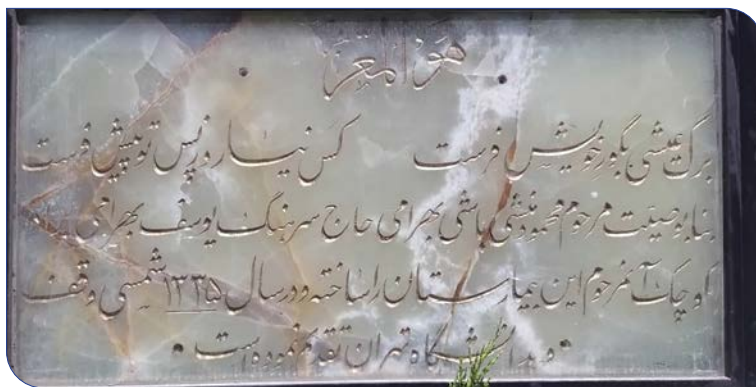 هوالمعز
برگ عیشی بگور خویش فرست کس نیارد ز پس تو پیش فرست
بنا بوصیت مرحوم محمود منشی باشی بهرامی حاج سرهنگ یوسف بهرامی برادر
کوچک آنمرحوم این بیمارستان را ساخته و در سال ۱۳۳۵ شمسی وقف
و بدانشگاه تهران تقدیم نموده است